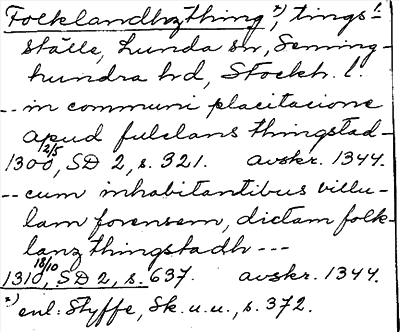 Folklandhzthing x), tings-
ställe, Lunda sn, Seming-
hundra hd, Stockh. l.
-- in communi placitacione
apud fulclans thingstad -
1300 12/5, SD 2, s. 321. avskr. 1344.
-- cum inhabitantibus villu-
lam forensem, dictam folk-
lanz thingstadh ---
1310 18/10, SD 2, s. 637. avskr. 1344.
x) enl. Styffe, Sk. u. u., s. 372.